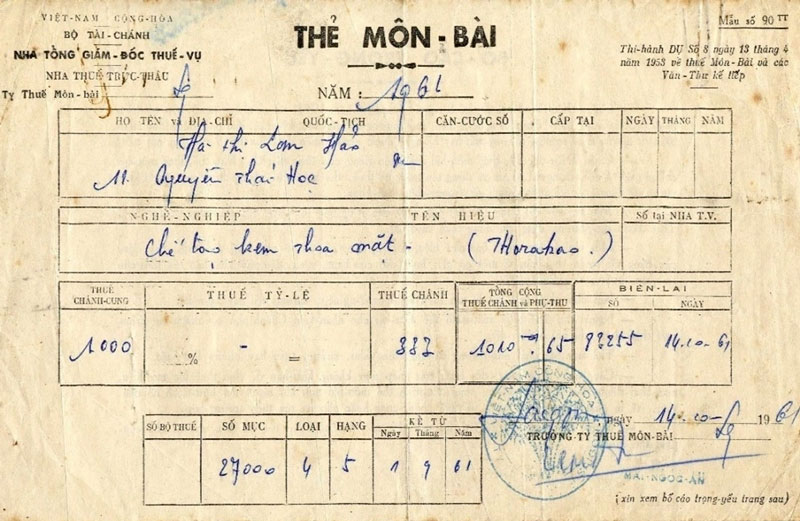 VIỆT-NAM CỘNG-HÒA
BỘ TÀI-CHÁNH
NHA TỔNG GIÁM-ĐỐC THUẾ-VỤ
NHA THUẾ TRỰC-THÂU
Ty Thuế Môn-bài
THẺ MÔN-BÀI
NĂM: 1961
Mẫu số 90 TT
Thi-hành DỤ Số 8 ngày 13 tháng 4
năm 1953 về thuế Môn-Bài và các
Văn-Thư kế tiếp
HỌ TÊN và ĐỊA-CHỈ QUỐC-TỊCH CĂN-CƯỚC SỐ CẤP TẠI NGÀY THÁNG NĂM
Hà thị Lan Hảo
11 Nguyễn Thái Học
NGHỀ-NGHIỆP TÊN HIỆU Số tại NHA T.V.
Chế tạo kem thoa mặt - (Thorakao.)
THUẾ CHÁNH-CUNG THUẾ TỶ-LỆ THUẾ CHÁNH TỔNG CỘNG THUẾ CHÁNH và PHỤ-THU BIÊN-LAI
SỐ NGÀY
1000 % - = 337 1010 65 83255 14.10-61
Saigon, ngày 14-10- 1961
TRƯỞNG TY THUẾ MÔN-BÀI
SỐ BỘ THUẾ SỐ MỤC LOẠI HẠNG KỂ TỪ
Ngày Tháng Năm
27000 4 5 1 9 61
MAI-NGỌC-ẨN
(xin xem bố cáo trọng-yếu trang sau)